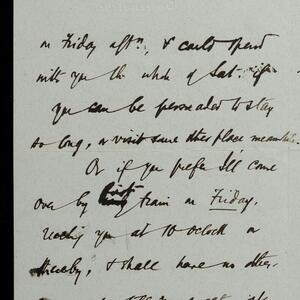 on Friday aftn, & could spend
with you the whole of Sat. if
you can be persuaded to stay
so long, or visit some other place meanwhile.
Or if you prefer I'll come
over by first train on Friday,
reaching you at 10 oclock or
thereby, & shall have no other